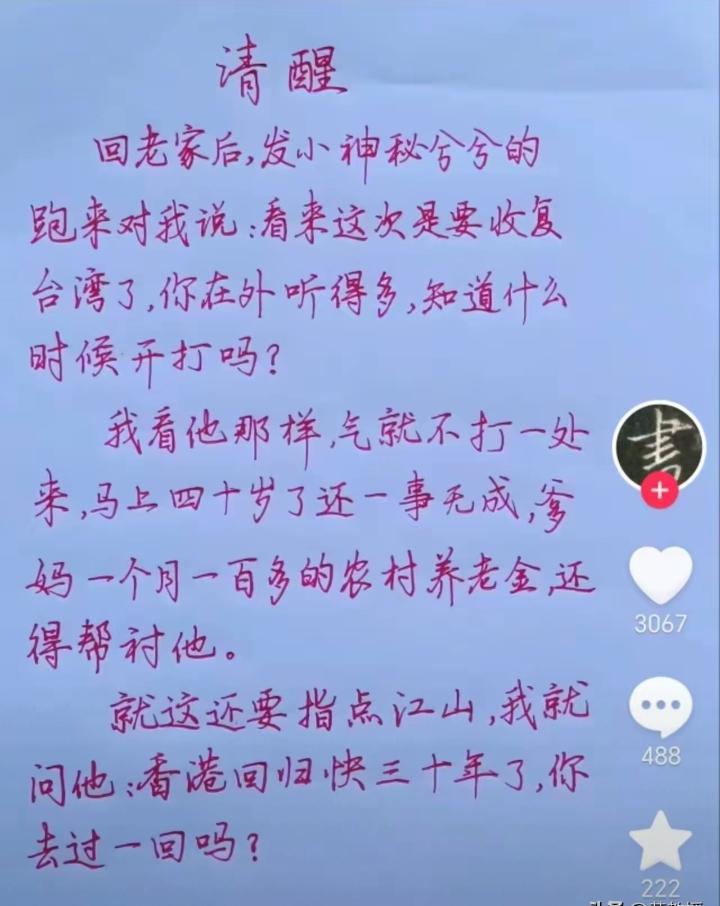 清醒
回老家后,发小神秘兮兮的
跑来对我说:看来这次是要收复
台湾了,你在外听得多,知道什么
时候开打吗?
我看他那样,气就不打一处
来,马上四十岁了还一事无成,爹
妈一个月一百多的农村养老金,还
得帮衬他。
就这还要指点江山,我就
问他:香港回归快三十年了,你
去过一回吗?
書
3067
488
222